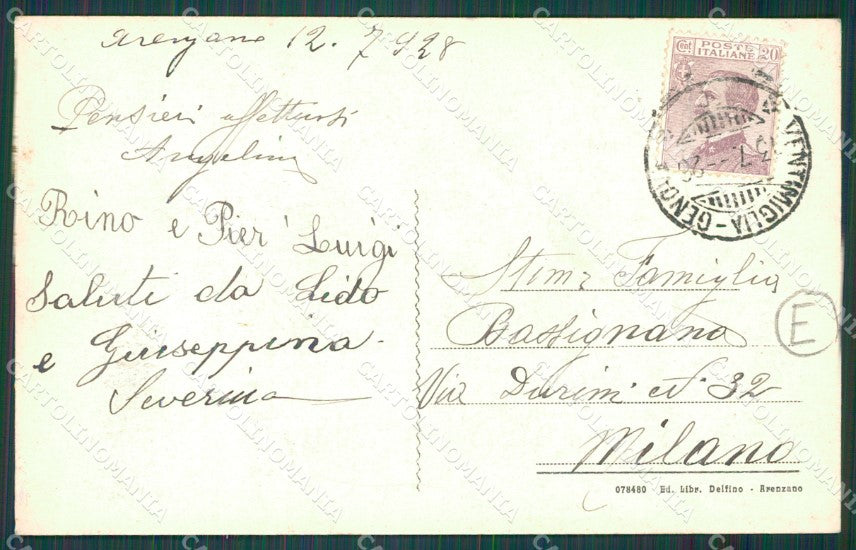 Arenzano 12. 7 928
Pensieri affettuosi
Angelina
Rino e Pier Luigi
Saluti da Lido
e Giuseppina -
Severina
Cent POSTE 20
ITALIANE
VENTIMIGLIA - GENOVA
13.7.
Stim. Famiglia
Bassignana
Via Durini N. 32
Milano
E
078480 Ed. Libr. Delfino - Arenzano
CARTOLINOMANIA